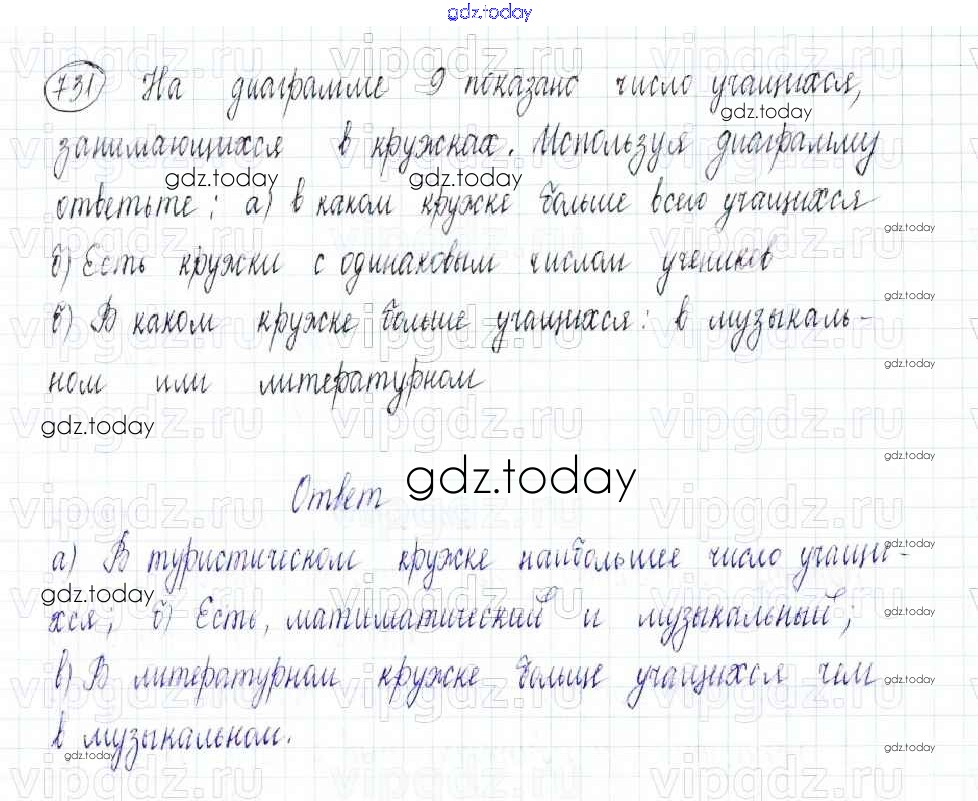 gdz.today
731 На диаграмме 9 показано число учащихся,
занимающихся в кружках. Используя диаграмму
ответьте: а) в каком кружке больше всего учащихся
б) Есть кружки с одинаковым числом учеников
в) В каком кружке больше учащихся: в музыкаль-
ном или литературном
Ответ
а) В туристическом кружке наибольшее число учащи-
хся; б) Есть, матиматический и музыкальный;
в) В литературном кружке больше учащихся чем
в музыкальном.